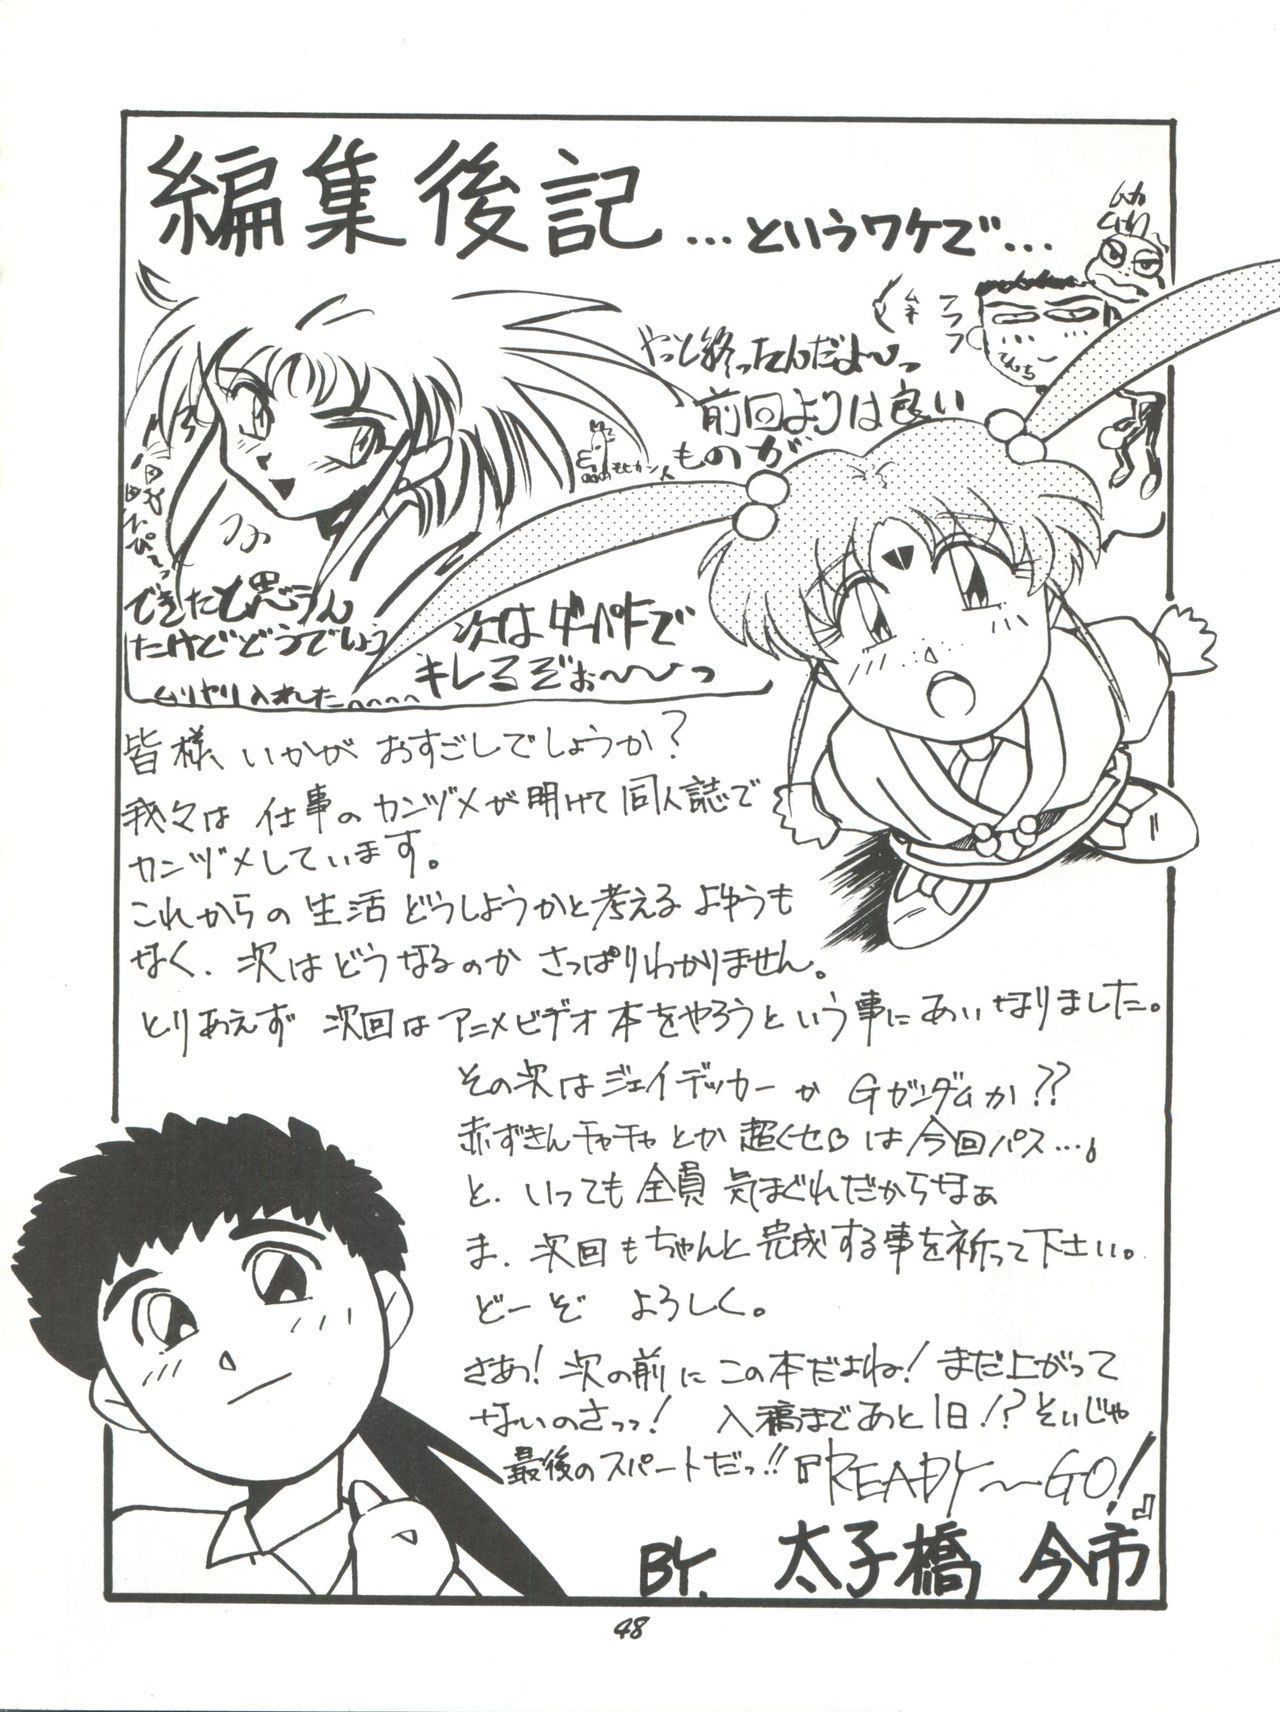 編集後記 …というワケで…
やっと終ったんだよ〜っ
前回よりは良い
ものが
できたと思うん
だけどどうでしょう
ムリヤリ入れした
次はダーパートで
キレるぞぉ〜〜っ
モヒカン人
フフフ
皆様、いかがおすごしでしょうか?
我々は仕事のカンヅメが明けて同人誌で
カンヅメしています。
これからの生活どうしようかと考えるよゆうも
なく、次はどうなるのかさっぱりわかりません。
とりあえず次回はアニメビデオ本をやろうという事にあいなりました。
その次はジェイデッカーかGガンダムか??
赤ずきんチャチャとか超くせ は今回パス…。
と、いっても全員気まぐれだからなぁ
ま、次回もちゃんと完成する事を祈って下さい。
どーぞ よろしく。
さあ!次の前にこの本だよね!まだ上がって
ないのさっっ! 入稿まであと1日!?そいじゃ
最後のスパートだっ!!『READY〜GO!』
BY. 太子橋 今市
48